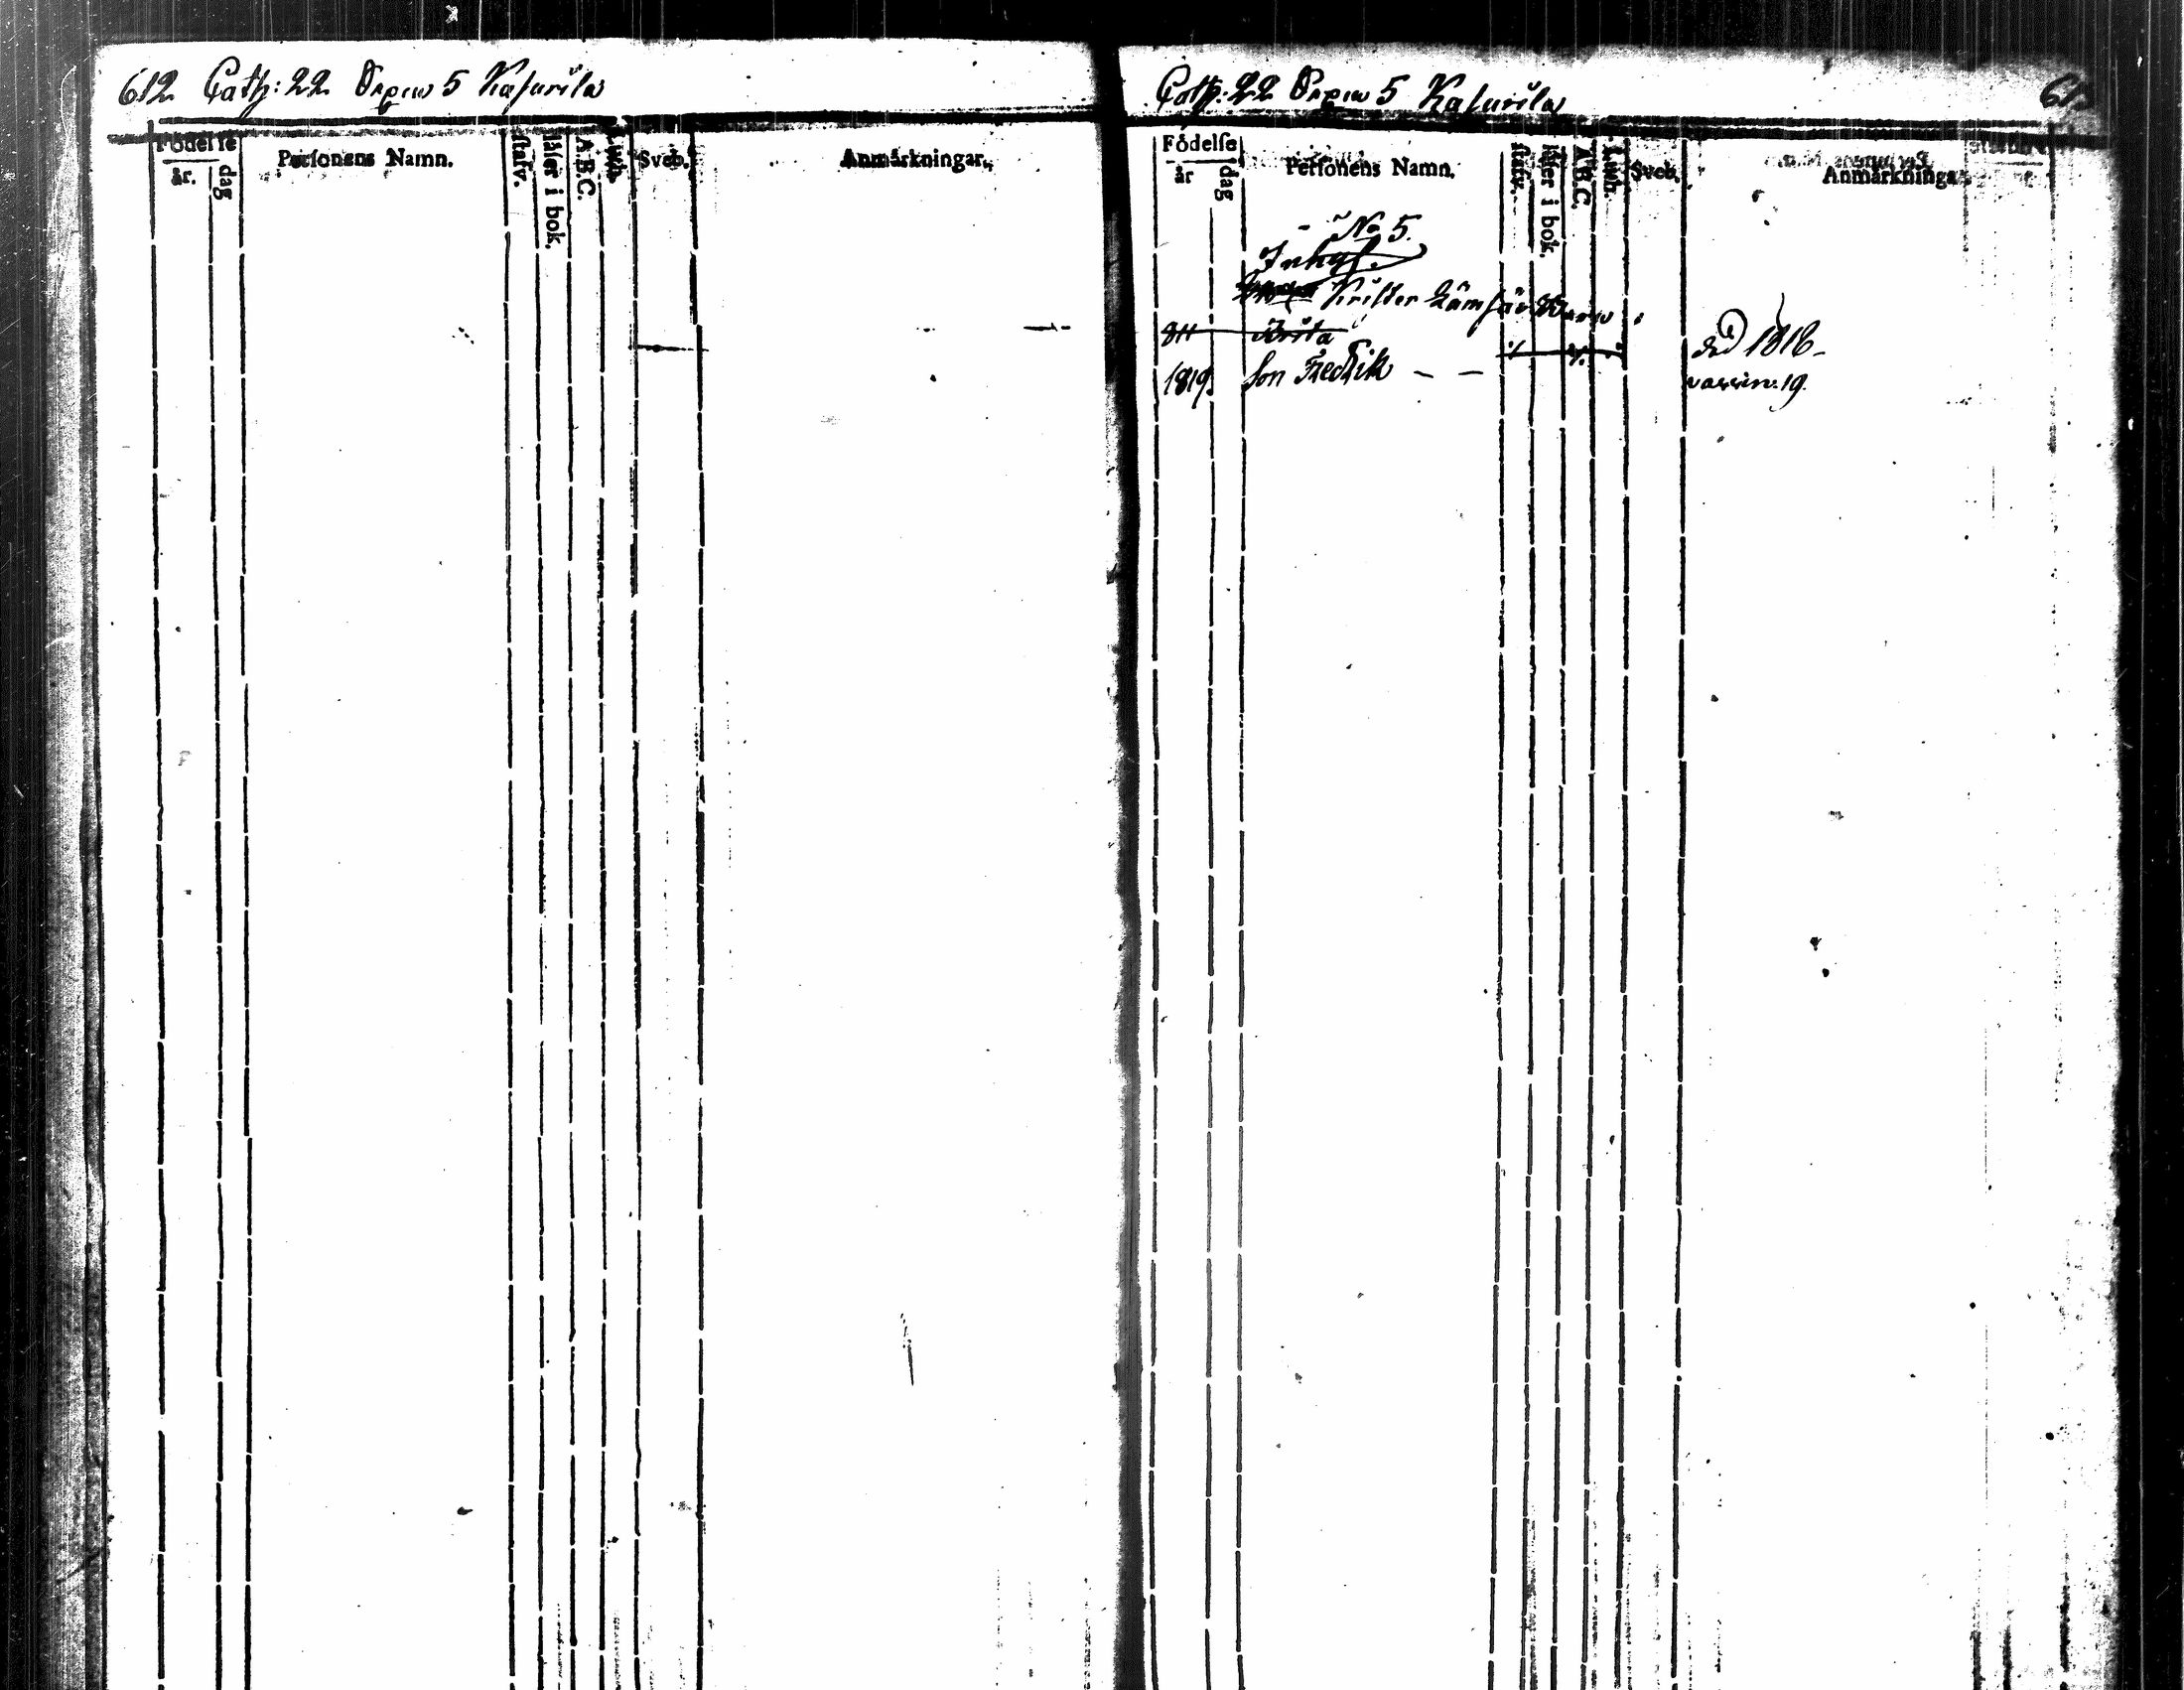 612 Cath: 22 Orpin 5 Kasurila
Födelse
år. dag
Personens Namn.
stafv.
låser i bok.
A.B.C.
Luth.
Sveb.
Anmärkningar.
Cath: 22 Orpin 5 Kasurila 613
Födelse
år dag
Personens Namn.
stafv.
låser i bok.
A.B.C.
Luth.
Sveb.
Anmärkninga
No 5.
Inhys.
Krister Barn
811 Brita död 1818
1819. Son Fredrik - - vaccin: 19.